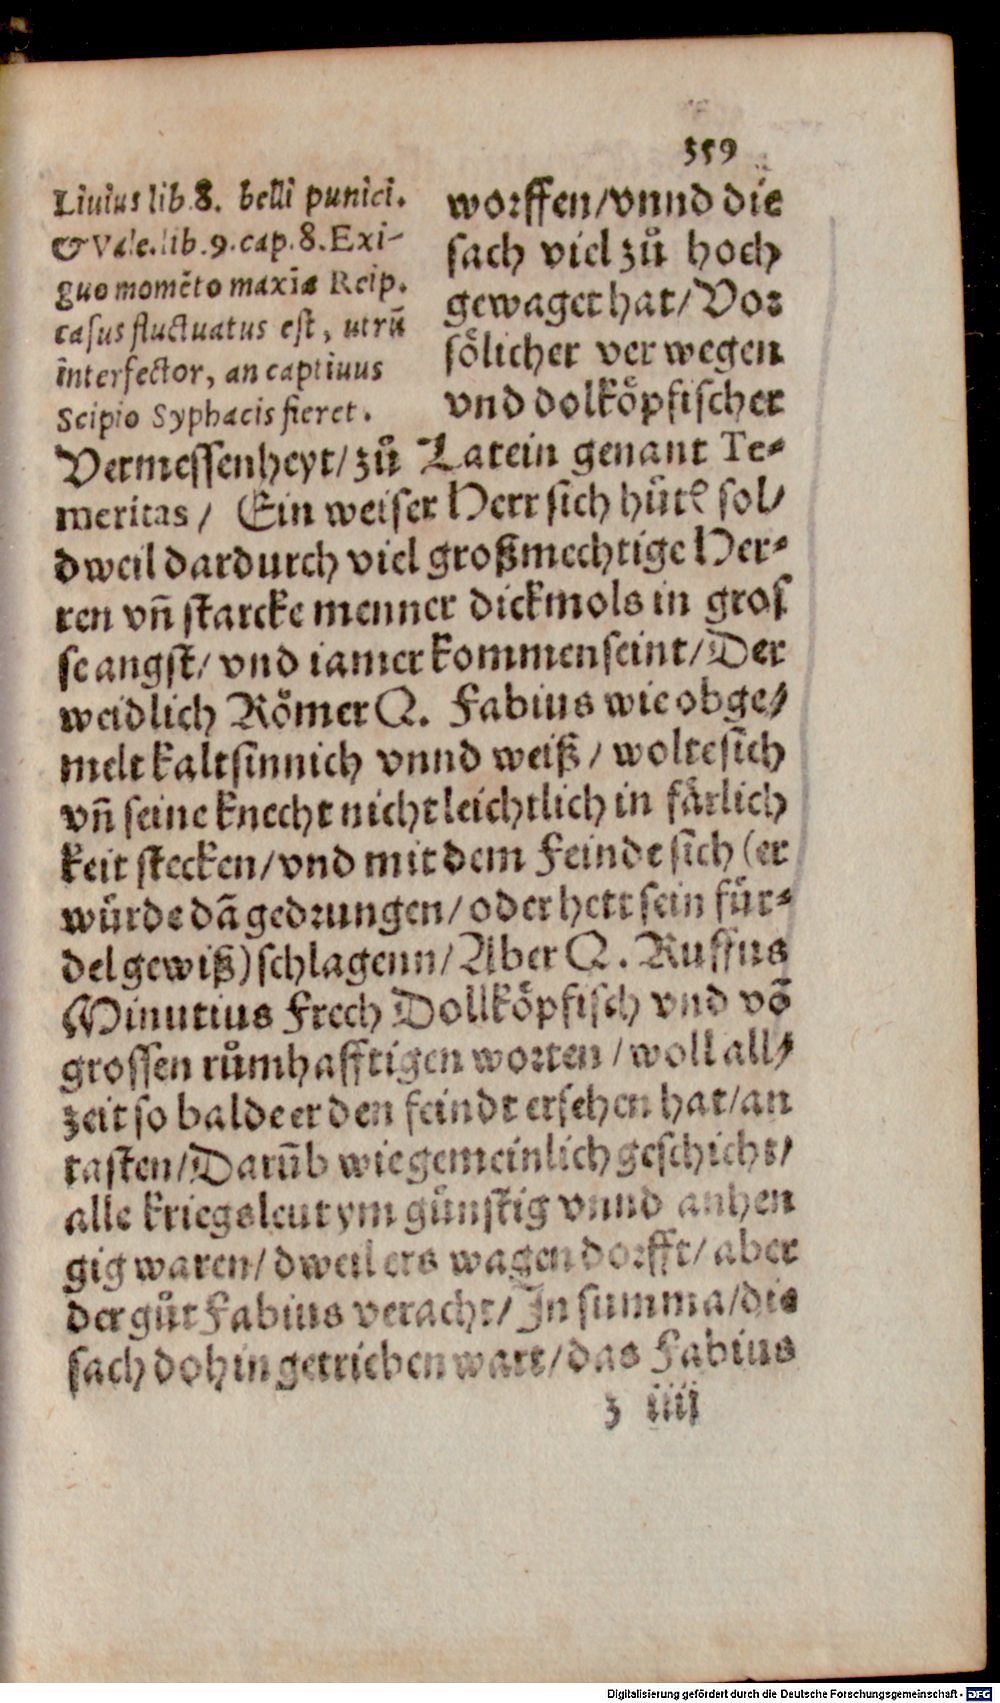 359
Liuius lib. 8. belli punici.
& Vale. lib. 9. cap. 8. Exi-
guo momēto maxīæ Reip.
casus fluctuatus est, utrū
interfector, an captiuus
Scipio Syphacis fieret.
worffen/vnnd die
sach viel zů hoch
gewaget hat/ Vor
sölicher verwegen
vnd dolköpfischer
Vermessenheyt/ zů Latein genant Te-
meritas/ Ein weiser Herr sich hütē sol/
dweil dardurch viel großmechtige Her-
ren vñ starcke menner dickmols in gros
se angst/ vnd iamer kommen seint/ Der
weidlich Römer Q. Fabius wie obge/
melt kaltsinnich vnnd weiß/ wolte sich
vñ seine knecht nicht leichtlich in färlich
keit stecken/ vnd mit dem Feindt sich (er
würde dā gedrungen/ oder hett sein für-
del gewiß) schlagenn/ Aber Q. Ruffus
Minutius Frech Dollköpfisch vnd vō
grossen růmhafftigen worten/ woll all/
zeit so balde er den feindt ersehen hat/ an
tasten/ Darūb wie gemeinlich geschicht/
alle kriegsleut ym günstig vnnd anhen
gig waren/ dweil ers wagen dorfft/ aber
der gůt Fabius veracht/ In summa/ die
sach dohin getrieben wart/ das Fabius
z iiij
Digitalisierung gefördert durch die Deutsche Forschungsgemeinschaft - DFG